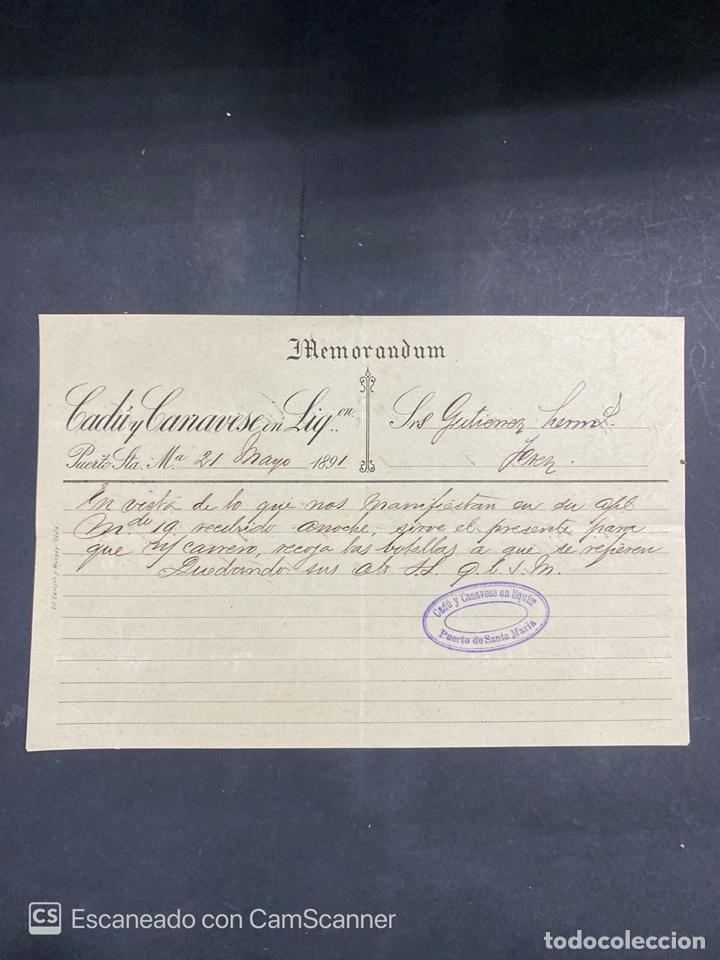 Memorandum
Cadú y Canavese en Liq.on
Puerto Sta. Ma. 21 Mayo 1891
Srs Gutierrez herms.
Jerez.
En vista de lo que nos manifiestan en su
19 recibido anoche, sirve el presente para
que carrero, recoja las botellas a que se refieren
Quedando sus S.S. Q.b.S.M.
Cadú y Canavese en liquion
Puerto de Santa Maria
CS Escaneado con CamScanner
todocoleccion